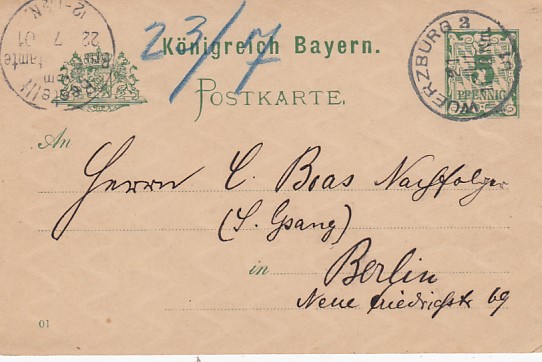 12-1 N.
22
7
01
23/7
Königreich Bayern.
POSTKARTE.
WUERZBURG 2
5
PFENNIG
An
Herrn C. Boas Nachfolger
in Berlin
Neue Friedrichstr 69
01